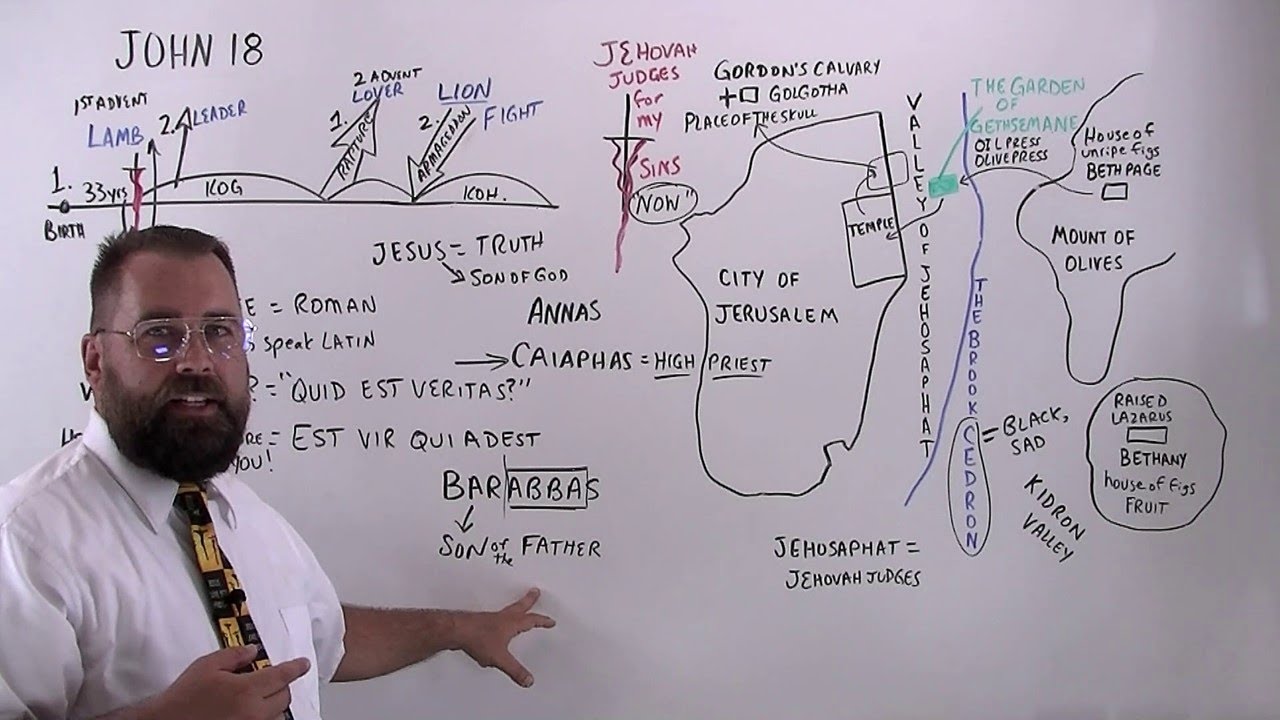 JOHN 18
1ST ADVENT
LAMB
2. LEADER
1.
33yrs
BIRTH
KOG
2 ADVENT
LOVER
1.
RAPTURE
LION
2.
FIGHT
ARMAGEDDON
KOH.
JESUS = TRUTH
SON OF GOD
= ROMAN
speak LATIN
= "QUID EST VERITAS?"
= EST VIR QUI ADEST
YOU!
ANNAS
CAIAPHAS = HIGH PRIEST
BARABBAS
SON of the FATHER
JEHOVAH
JUDGES
for
my
SINS
"NOW"
GORDON'S CALVARY
GOLGOTHA
PLACE OF THE SKULL
TEMPLE
CITY OF
JERUSALEM
VALLEY OF JEHOSAPHAT
THE GARDEN
OF
GETHSEMANE
OIL PRESS
OLIVE PRESS
THE BROOK CEDRON
= BLACK,
SAD
KIDRON
VALLEY
House of
unripe figs
BETHPAGE
MOUNT OF
OLIVES
RAISED
LAZARUS
BETHANY
house of figs
FRUIT
JEHOSAPHAT =
JEHOVAH JUDGES